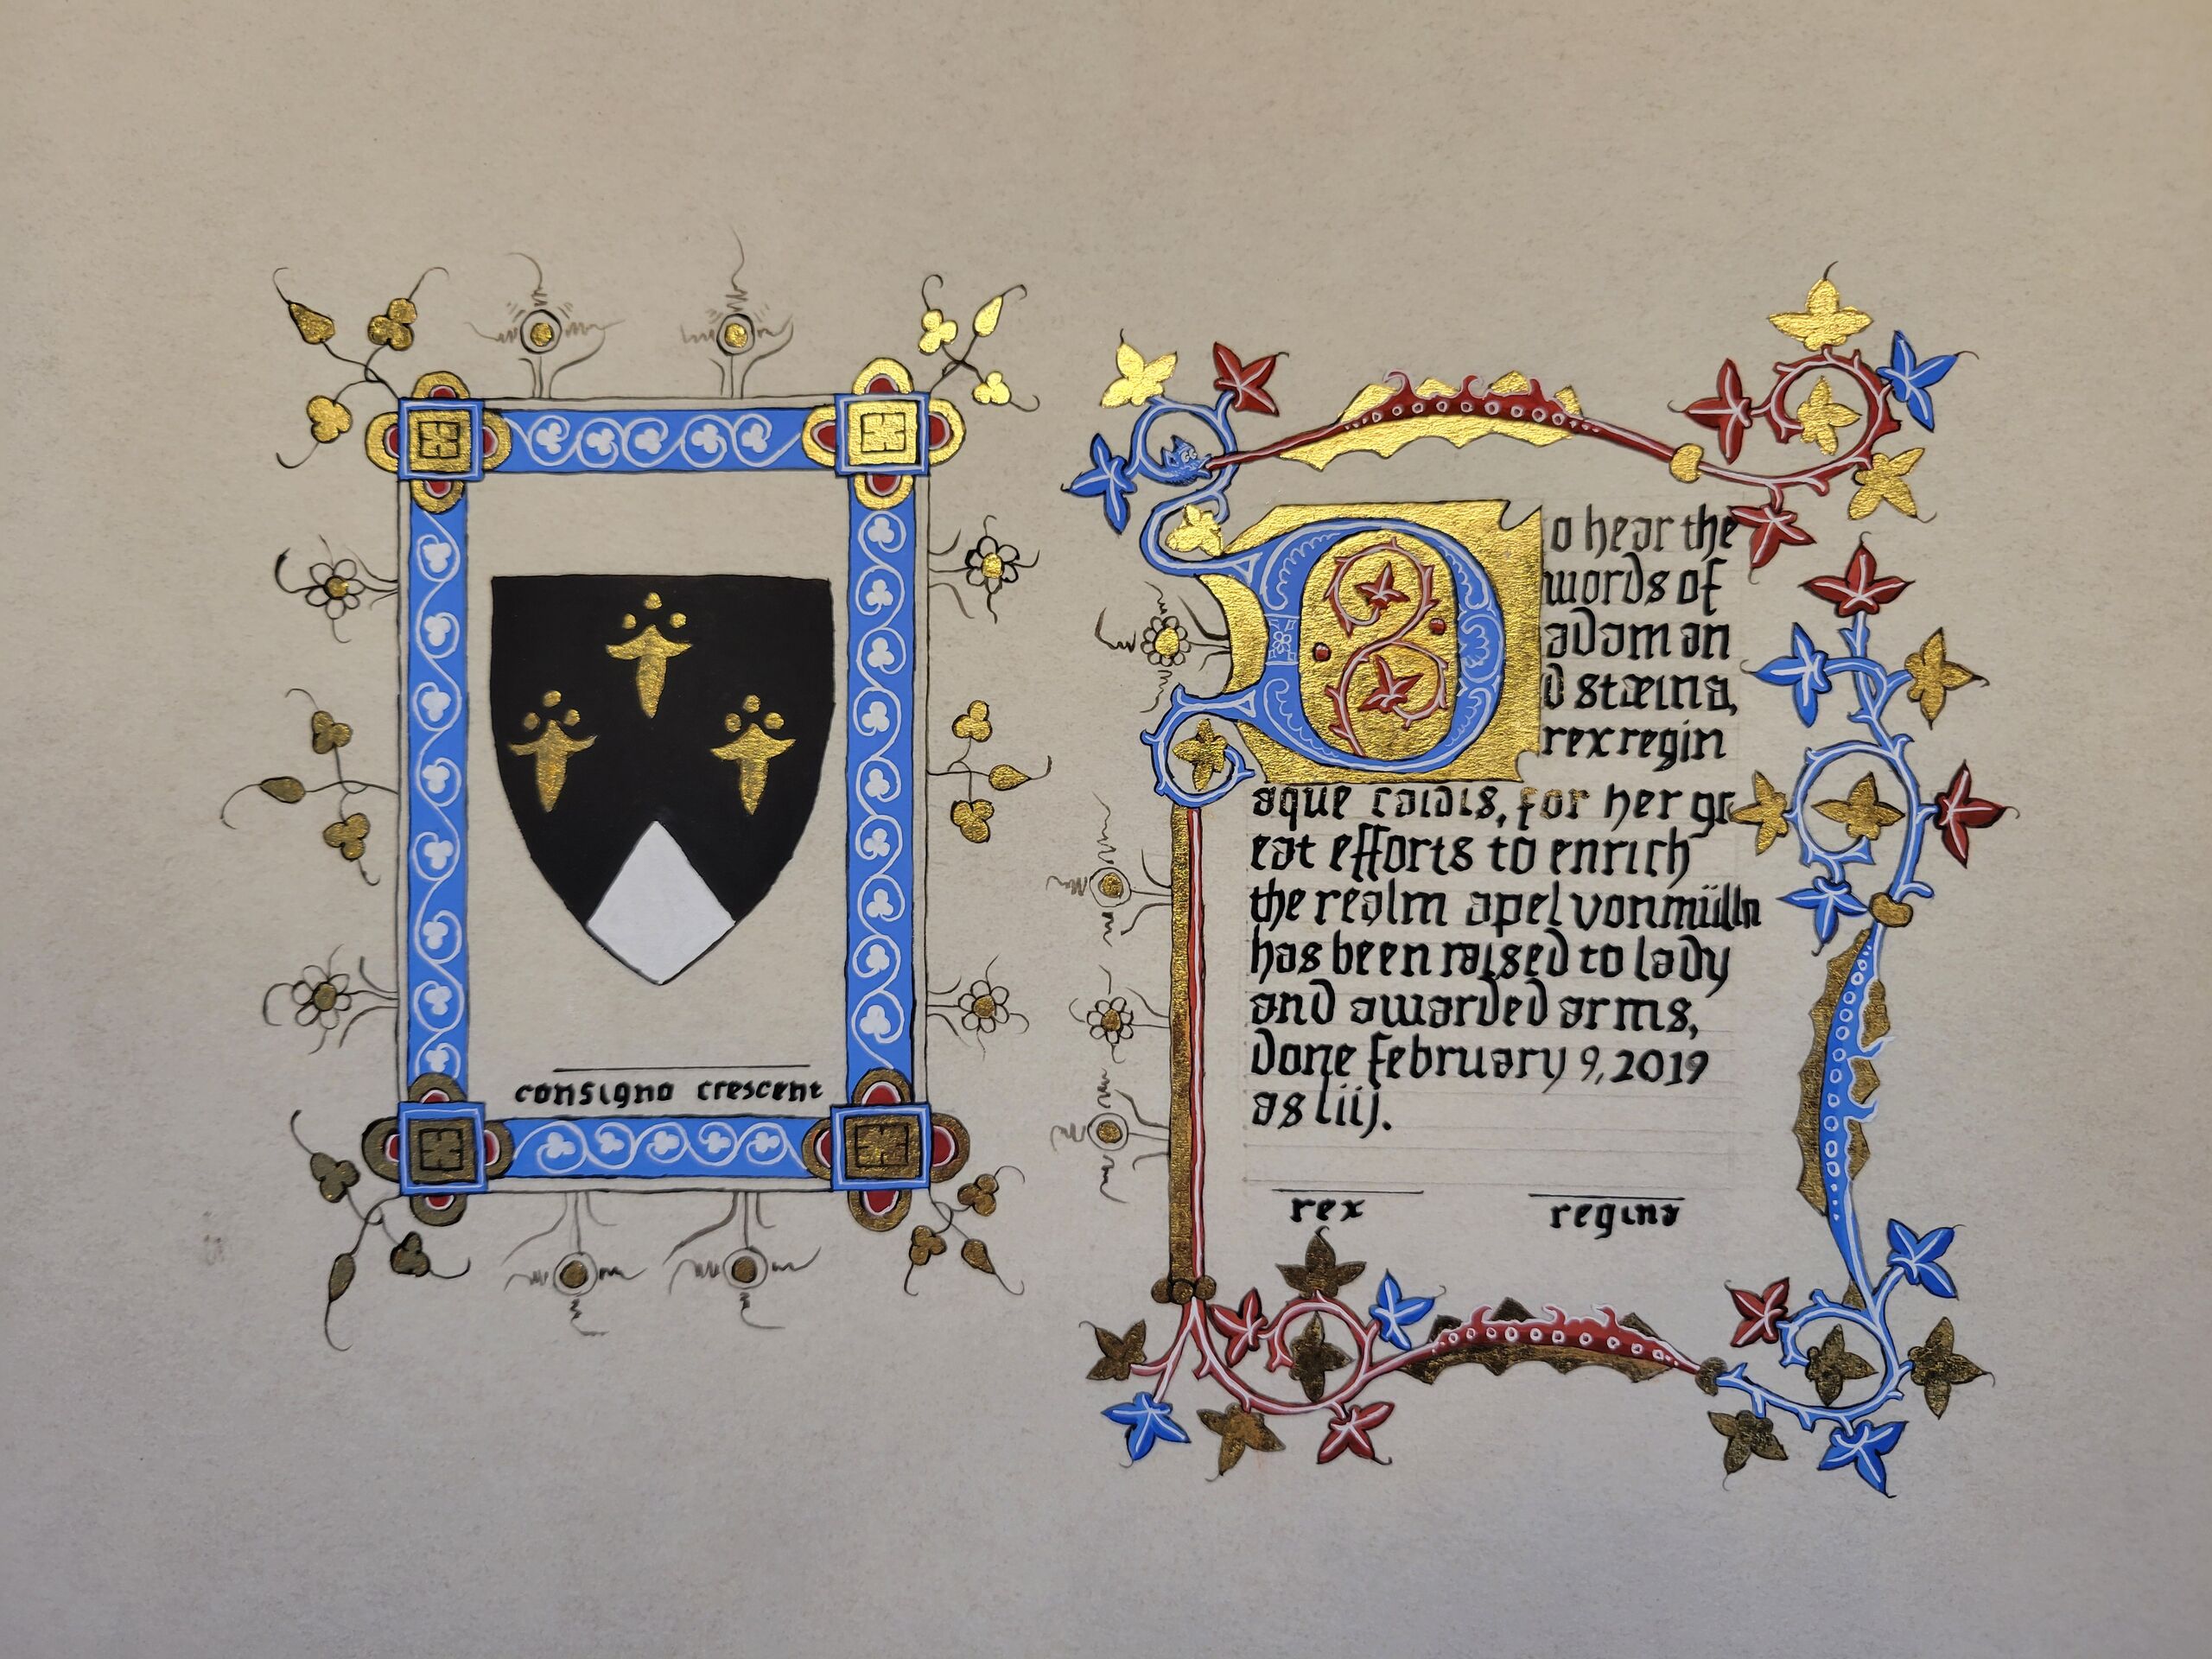 consigno crescent
Do hear the
words of
adam an
d stæina,
rex regin
aque calais, for her gr
eat efforts to enrich
the realm apel von mülln
has been raised to lady
and awarded arms,
done february 9, 2019
as liij.
rex regina